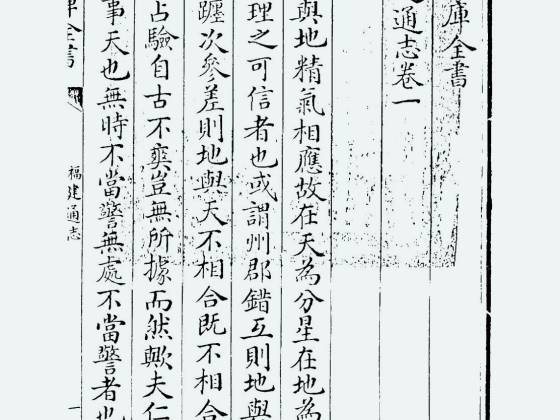 庫全書
通志卷一
與地精氣相應故在天為分星在地為
理之可信者也或謂州郡錯互則地與
躔次參差則地與天不相合既不相合
占驗自古不爽豈無所據而然歟夫仁
事天也無時不當警無處不當警者也
全書
福建通志
一